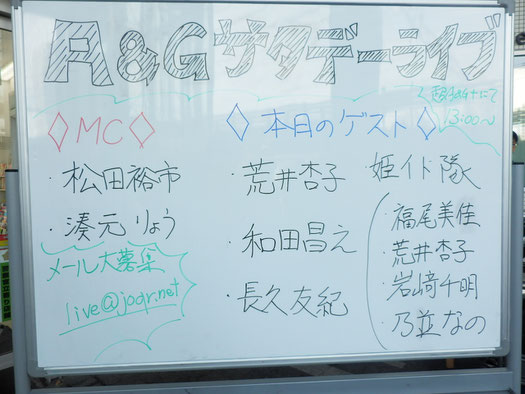 A&Gサタデーライブ
超A&G+にて
13:00〜
◇MC◇
・松田裕市
・湊元りょう
メール大募集
live@joqr.net
◇本日のゲスト◇
・荒井杏子
・和田昌之
・長久友紀
姫イド隊
・福尾美佳
・荒井杏子
・岩﨑千明
・乃並なの